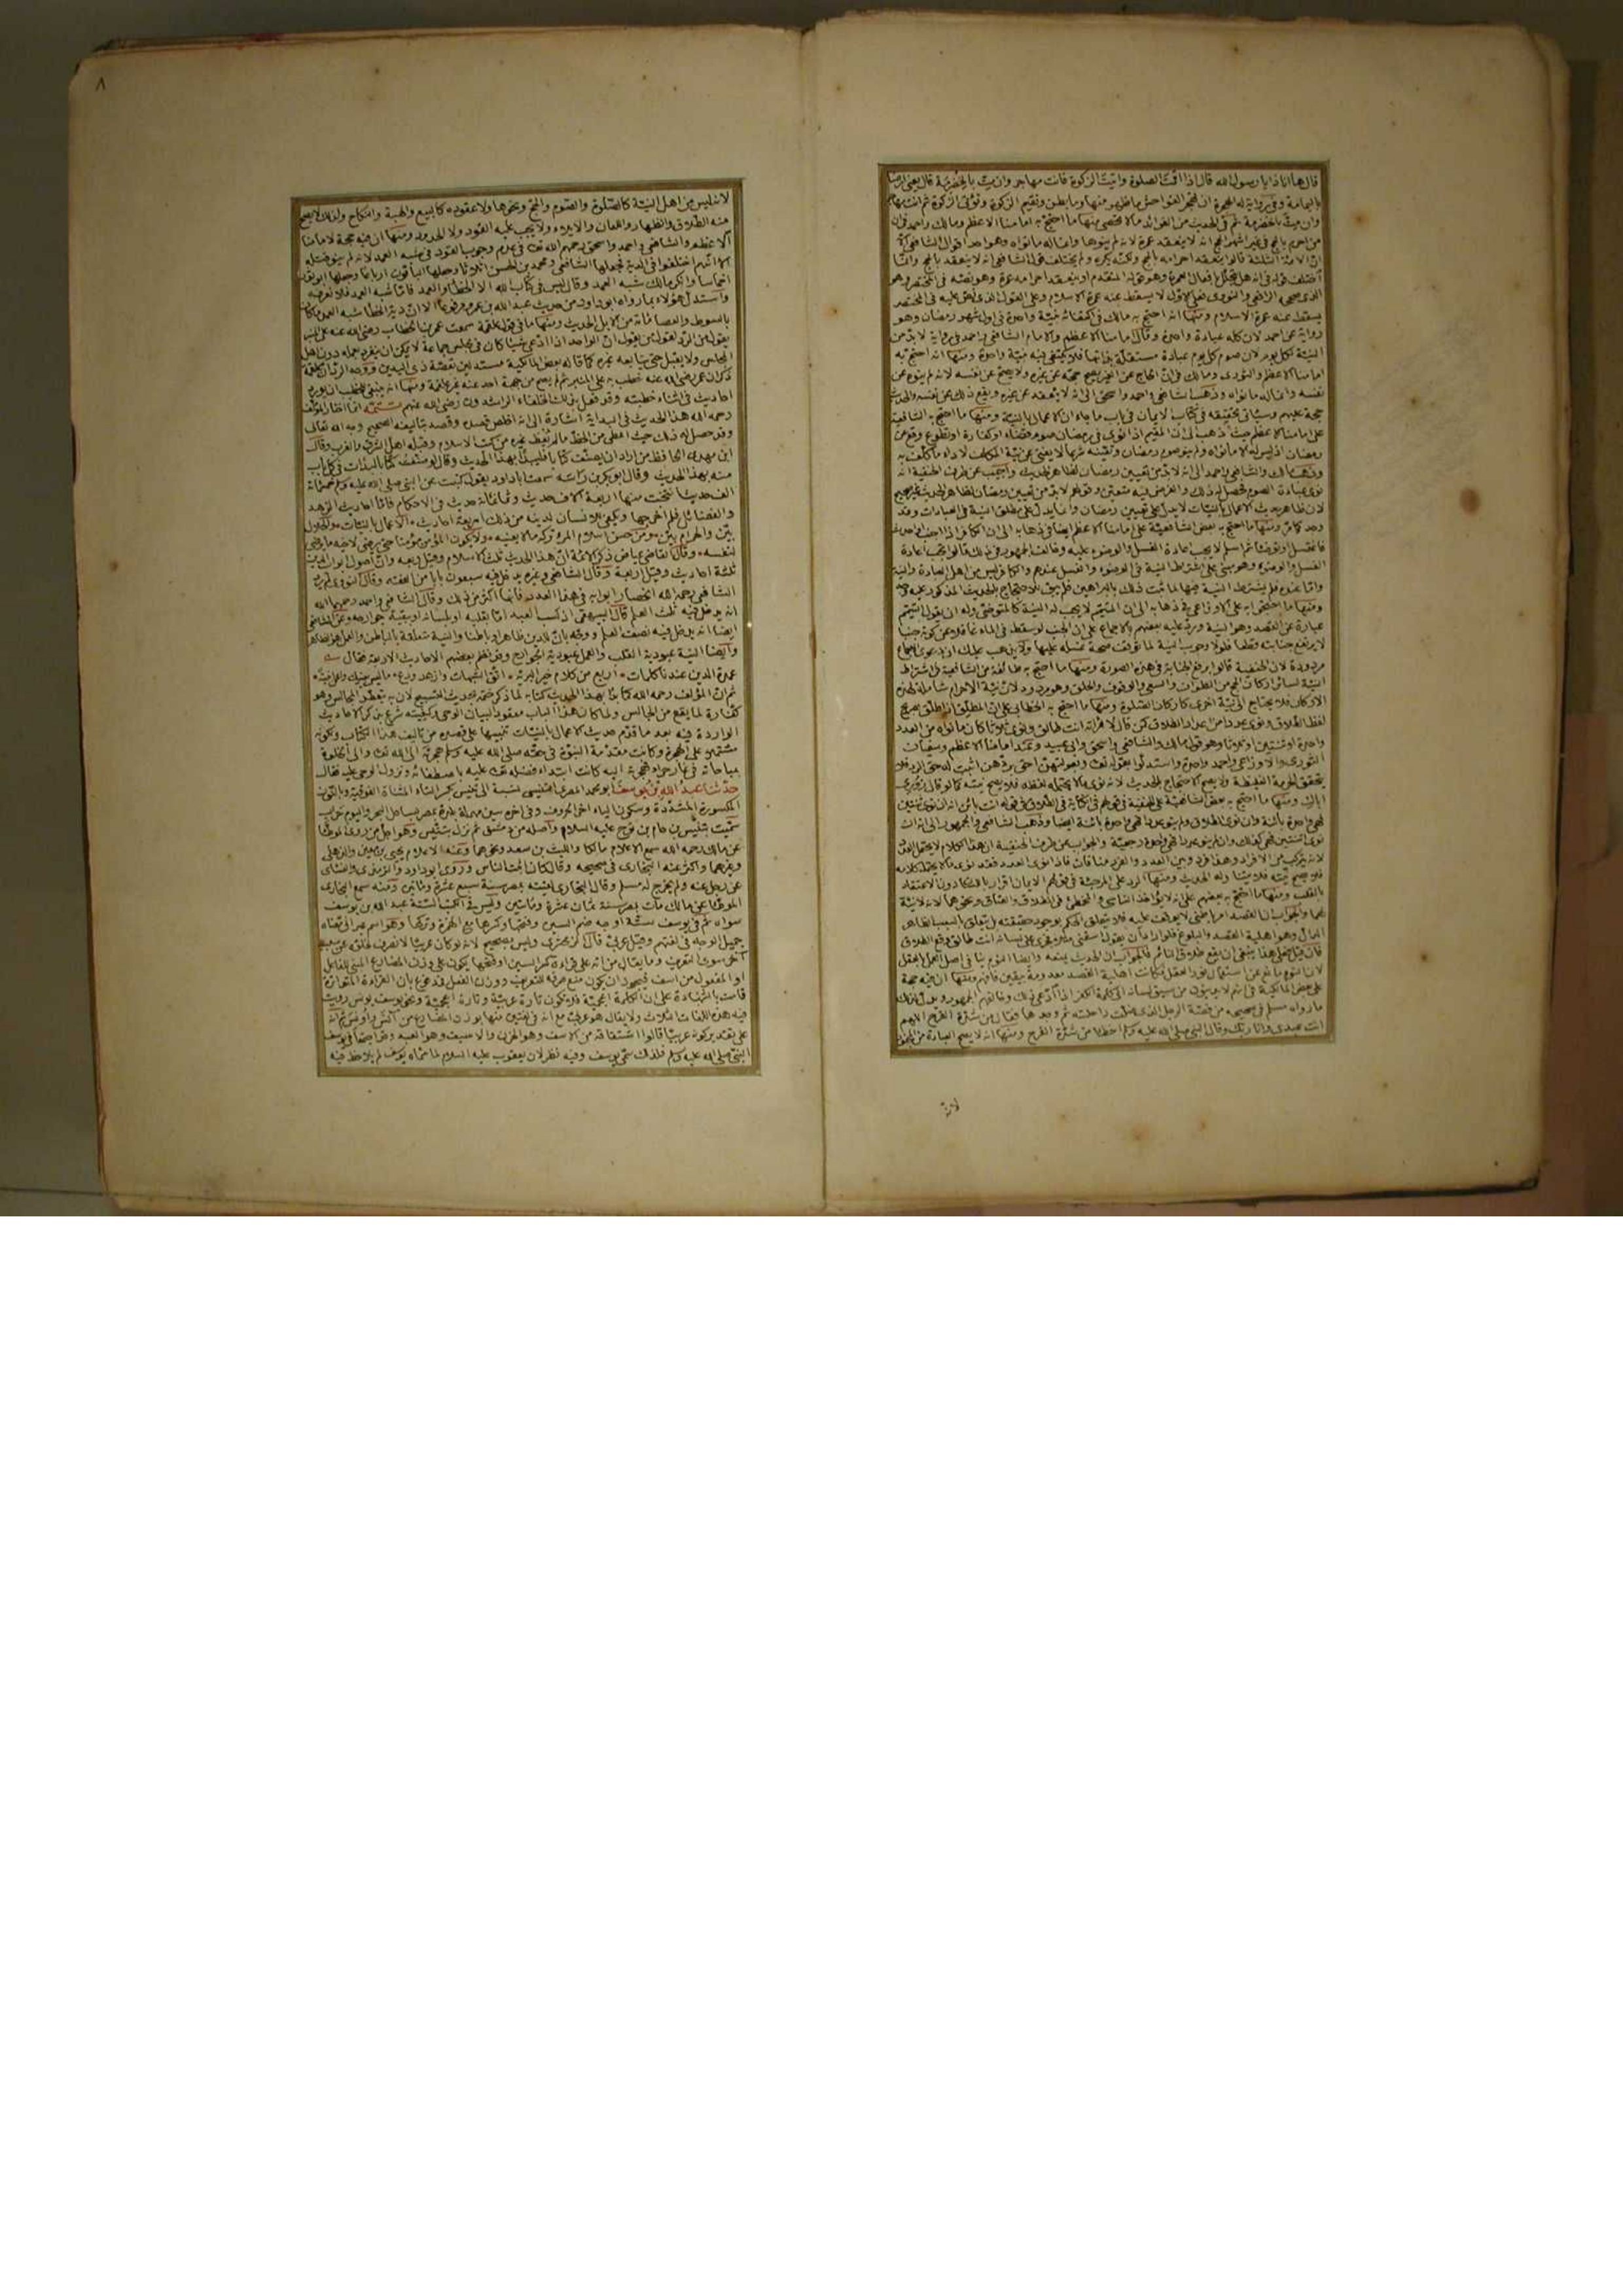 قال ها انا ذا يا رسول الله قال اذا اقمت الصلوة واتيت الزكوة فانت مهاجر وان مت بالحضرمة قال يعني ارضا
باليمامة وفي رواية له الهجرة ان تهجر الفواحش ما ظهر منها وما بطن وتقيم الزكوة وتؤتي الزكوة ثم انت مهاجر
وان مت بالحضرمة ثم في الحديث من الفوائد ما لا يحصى منها ما احتج به امامنا الاعظم ومالك واحمد في ان
من احرم بالحج في غير اشهر الحج انه لا ينعقد عمرة لانه لم ينوها وانما له ما نواه وهو احد اقوال الشافعي الا
ان الائمة الثلثة قالوا ينعقد احرامه بالحج ولكنه يكره ولم يختلف قول الشافعي انه لا ينعقد بالحج وانما
اختلف قوله في انه هل يتحلل بافعال العمرة وهو قوله المتقدم او ينعقد احرامه عمرة وهو نصه في المختصر وهو
الذي صححه الرافعي والنووي فعلى الاول لا يسقط عنه عمرة الاسلام وعلى القول الذي نص عليه في المختصر
يسقط عنه عمرة الاسلام ومنها انه احتج به مالك في اكتفائه بنية واحدة في اول شهر رمضان وهو
رواية عن احمد لان كله عبادة واحدة وقال امامنا الاعظم والامام الشافعي واحمد في رواية لا بد من
النية لكل يوم لان صوم كل يوم عبادة مستقلة بذاتها فلا يكتفى فيه بنية واحدة ومنها انه احتج به
امامنا الاعظم والثوري ومالك في ان الحاج عن الغير يصح حجه عن غيره ولا يصح عن نفسه لانه لم ينوه عن
نفسه وانما له ما نواه وذهب الشافعي واحمد واسحق الى انه لا ينعقد عن غيره ويقع ذلك عن نفسه والحديث
حجة عليهم وسيأتي تحقيقه في كتاب الايمان في باب ما جاء ان الاعمال بالنية ومنها ما احتج به الشافعية
على امامنا الاعظم حيث ذهب الى ان المقيم اذا نوى في رمضان صوم قضاء او كفارة او تطوع وقع عن
رمضان اذ ليس له الا ما نواه ولم ينو صوم رمضان وتعينه شرعا لا يغني عن نية المكلف لاداء ما كلف به
وذهب مالك والشافعي واحمد الى انه لا بد من تعيين رمضان لظاهر الحديث واجيب عن طرف الحنفية انه
نوى عبادة الصوم فحصل له ذلك والفرض فيه متعين وقولهم لا بد من تعيين رمضان لظاهر الحديث غير صحيح
لان ظاهر حديث الاعمال بالنيات لا يدل على تعيين رمضان وانما يدل على مطلق النية في العبادات وقد
وجد كما مر ومنها ما احتج به بعض الشافعية على امامنا الاعظم ايضا في ذهابه الى ان الكافر اذا اجنب او احدث
فاغتسل او توضأ ثم اسلم لا يجب اعادة الغسل والوضوء عليه وخالفت الجمهور في ذلك قالوا يجب اعادة
الغسل والوضوء وهو مبني على اشتراط النية في الوضوء والغسل عندهم والكافر ليس من اهل العبادة والنية
واما عنده فلم يشترط النية فيها لما ثبت ذلك بالبراهين فلم يبق للاحتجاج بالحديث المذكور عليه وجه
ومنها ما احتج به على الاوزاعي في ذهابه الى ان المتيمم لا يجب له النية كالمتوضئ وله ان يقول التيمم
عبارة عن القصد وهو النية ورد عليه بعضهم بالاجماع على ان الجنب لو سقط في الماء غافلا عن كونه جنبا
لا يرتفع جنابته قطعا فلولا وجوب النية لما توقفت صحة غسله عليها ولا يذهب عليك ان دعوى الاجماع
مردودة لان الحنفية قالوا برفع الجنابة في هذه الصورة ومنها ما احتج به طائفة من الشافعية في اشتراط
النية لسائر اركان الحج من الطواف والسعي والوقوف والحلق وهو مردود لان نية الاحرام شاملة لهذه
الاركان فلا يحتاج الى نية اخرى كاركان الصلوة ومنها ما احتج به الخطابي على ان المطلق اذا طلق بصريح
لفظ الطلاق ونوى عددا من اعداد الطلاق كمن قال لامرأته انت طالق ونوى ثلاثا كان ما نواه من العدد
واحدة او ثنتين او ثلاثا وهو قول مالك والشافعي واسحق وابي عبيد وعند امامنا الاعظم وسفيان
الثوري والاوزاعي واحمد واحدة واستدلوا بقوله تعالى وبعولتهن احق بردهن اثبت له حق الرد فلا
يتحقق الحرمة الغليظة ولا يصح الاحتجاج بالحديث لانه نوى ما لا يحتمله لفظه فلا يصح نيته كما لو قال زوري
اباك ومنها ما احتج به بعض الشافعية على الحنفية في قولهم في الكناية في الطلاق في قوله انت بائن انه ان نوى ثنتين
فهي واحدة بائنة وان نوى الطلاق ولم ينو عددا فهي واحدة بائنة ايضا وذهب الشافعي والجمهور الى انه ان
نوى اثنتين فهي كذلك وان لم ينو عددا فهي واحدة رجعية والجواب عن طرف الحنفية ان هذا الكلام لا يحتمل العدد
لانه يتركب من الافراد وهذا فرد وبين العدد والفرد منافاة فاذا نوى العدد فقد نوى ما لا يحتمله كلامه
فلا يصح نيته فلا يتناوله الحديث ومنها الرد على المرجئة في قولهم الايمان اقرار باللسان دون الاعتقاد
بالقلب ومنها ما احتج به بعضهم على انه لا يؤاخذ الناسي والمخطئ في الطلاق والعتاق ونحوهما لانه لا نية
لهما والجواب ان القصد امر باطني لا يوقف عليه فلا يتعلق الحكم بوجود حقيقته بل يتعلق بالسبب الظاهر
الدال وهو اهلية القصد والبلوغ فلو اراد ان يقول اسقني مثلا فجرى على لسانه انت طالق وقع الطلاق
فان قيل فعلى هذا ينبغي ان يقع طلاق النائم فالجواب ان الحديث يمنعه وايضا النوم ينافي اصل العمل بالعقل
لان النوم مانع عن استعمال نور العقل فكانت اهلية القصد معدومة بيقين فافهم ومنها ان فيه حجة
على بعض المالكية في انهم لا يدينون من سبق لسانه الى كلمة الكفر اذا ادعى ذلك وخالفهم الجمهور ويدل لذلك
ما رواه مسلم في صحيحه من قصة الرجل الذي ضلت راحلته ثم وجدها فقال من شدة الفرح اللهم
انت عبدي وانا ربك وقال النبي صلى الله عليه وسلم اخطأ من شدة الفرح ومنها انه لا يصح العبادة من المجنون
لانه
٨
لانه ليس من اهل النية كالصلوة والصوم والحج ونحوها ولا عقوده كالبيع والهبة والنكاح وكذلك لا يصح
منه الطلاق والظهار واللعان والايلاء ولا يجب عليه القود ولا الحدود ومنها ان فيه حجة لامامنا
الاعظم والشافعي واحمد واسحق رحمهم الله تعالى في عدم وجوب القود في شبه العمد لانه لم ينو قتله
الا انهم اختلفوا في الدية فجعلها الشافعي ومحمد بن الحسن اثلاثا وجعلها الباقون ارباعا وجعلها ابو ثور
اخماسا وانكر مالك شبه العمد وقال ليس في كتاب الله الا الخطأ والعمد فاما شبه العمد فلا نعرفه
واستدل هؤلاء بما رواه ابو داود من حديث عبد الله بن عمر مرفوعا الا ان دية الخطأ شبه العمد ما كان
بالسوط والعصا مائة من الابل الحديث ومنها ما في قول علقمة سمعت عمر بن الخطاب رضي الله عنه على المنبر
يقول من الرد لقول من يقول ان الواحد اذا ادعى شيئا كان في مجلس جماعة لا يمكن ان ينفرد بعلمه دون اهل
المجلس ولا يقبل حتى يتابعه غيره كما قاله بعض المالكية مستدلين بقصة ذي اليدين ووجه الرد ان علقمة
ذكر ان عمر رضي الله عنه خطب به على المنبر ثم لم يصح من جهة احد عنه غير علقمة ومنها انه ينبغي للخطيب ان يورد
احاديث في اثناء خطبته وقد فعل بذلك الخلفاء الراشدون رضي الله عنهم تتمة انما اختار المؤلف
رحمه الله هذا الحديث في البداية اشارة الى انه اخلص قصده وقصد بتاليفه الصحيح وجه الله تعالى
وقد حصل له ذلك حيث اعطي من الحظ ما لم يعط غيره من كتب الاسلام وقبله اهل الشرق والغرب وقال
ابن مهدي الحافظ من اراد ان يصنف كتابا فليبدأ بهذا الحديث وقال لو صنفت كتابا لبدأت في كل باب
منه بهذا الحديث وقال ابو بكر بن داسة سمعت ابا داود يقول كتبت عن النبي صلى الله عليه وسلم خمسمائة
الف حديث انتخبت منها اربعة الاف حديث وثمانمائة حديث في الاحكام فاما احاديث الزهد
والفضائل فلم اخرجها ويكفي الانسان لدينه من ذلك اربعة احاديث الاعمال بالنيات والحلال
بين والحرام بين ومن حسن اسلام المرء تركه ما لا يعنيه ولا يكون المؤمن مؤمنا حتى يرضى لاخيه ما يرضى
لنفسه وقال القاضي عياض ذكر الائمة ان هذا الحديث ثلث الاسلام وقيل ربعه وان اصول الدين
ثلثة احاديث وقيل اربعة وقال الشافعي وغيره يدخل فيه سبعون بابا من الفقه وقال النووي لم يرد
الشافعي رحمه الله انحصار ابوابه في هذا العدد فانها اكثر من ذلك وقال الشافعي واحمد رحمهما الله
انه يدخل فيه ثلث العلم قال البيهقي اذ كسب العبد اما بقلبه او بلسانه او ببقية جوارحه وعن الشافعي
ايضا انه يدخل فيه نصف العلم ووجه بان للدين ظاهرا وباطنا والنية متعلقة بالباطن والعمل هو الظاهر
وايضا النية عبودية القلب والعمل عبودية الجوارح وقد نظم بعضهم الاحاديث الاربعة فقال
عمدة الدين عندنا كلمات اربع من كلام خير البرية اتق الشبهات وازهد ودع ما ليس يعنيك واعمل بنية
ثم ان المؤلف رحمه الله كما بدأ بهذا الحديث كتابه لما ذكر ختمه بحديث التسبيح لان به يتعطر المجالس وهو
كفارة لما يقع من المجالس ولما كان هذا الباب معقودا لبيان الوحي وكيفيته شرع بذكر الاحاديث
الواردة فيه بعد ما قدم حديث الاعمال بالنيات تنبيها على قصده من تاليف هذا الكتاب ولكونه
مشتملا على الهجرة وكانت مقدمة النبوة في حقه صلى الله عليه وسلم هجرته الى الله تعالى والى الخلوة
بمناجاته في غار حراء فهجرته اليه كانت ابتداء فضله تعالى عليه باصطفائه ونزول الوحي عليه فقال
حدثنا عبد الله بن يوسف ابو محمد المصري التنيسي نسبة الى تنيس بكسر التاء المثناة الفوقية وبالنون
المكسورة المشددة وسكون الياء اخر الحروف وفي اخره سين مهملة بلدة بمصر بساحل البحر واليوم خراب
سميت بتنيس بن حام بن نوح عليه السلام واصله من دمشق ثم نزل بتنيس وهو اجل من روى الموطأ
عن مالك رحمه الله سمع الاعلام مالكا والليث بن سعد ونحوهما وعنه الاعلام يحيى بن معين والذهلي
وغيرهما واكثر عنه البخاري في صحيحه وقال كان اثبت الناس وروى ابو داود والترمذي والنسائي
عن رجل عنه ولم يخرج له مسلم وقال البخاري لقيته بمصر سنة سبع عشرة ومائتين ومنه سمع البخاري
الموطأ عن مالك مات بمصر سنة ثمان عشرة ومائتين وليس في الكتب الستة عبد الله بن يوسف
سواه ثم في يوسف ستة اوجه ضم السين وفتحها وكسرها مع الهمزة وتركها وهو اسم عبراني معناه
جميل الوجه في لغتهم وقيل عربي قال الزمخشري وليس بصحيح لانه لو كان عربيا لانصرف لخلوه عن سبب
آخر سوى التعريف وما يقال من انه على قراءة كسر السين او فتحها يكون على وزن المضارع المبني للفاعل
او المفعول من آسف فيجوز ان يكون منع صرفه للتعريف ووزن الفعل فمدفوع بان القراءة المتواترة
قامت بالشهادة على ان الكلمة اعجمية فلا يكون تارة عربية وتارة اعجمية ونحو يوسف يونس رويت
فيه هذه اللغات الثلاث ولا يقال هو عربي مع انه في لغتين منها بوزن المضارع من آنس واونس ثم انه
على تقدير كونه عربيا قالوا اشتقاقه من الاسف وهو الحزن والاسيف وهو العبد وقد اجتمعا في يوسف
النبي صلى الله عليه وسلم فلذلك سمي يوسف وفيه نظر لان يعقوب عليه السلام لما سماه يوسف لم يلاحظ فيه